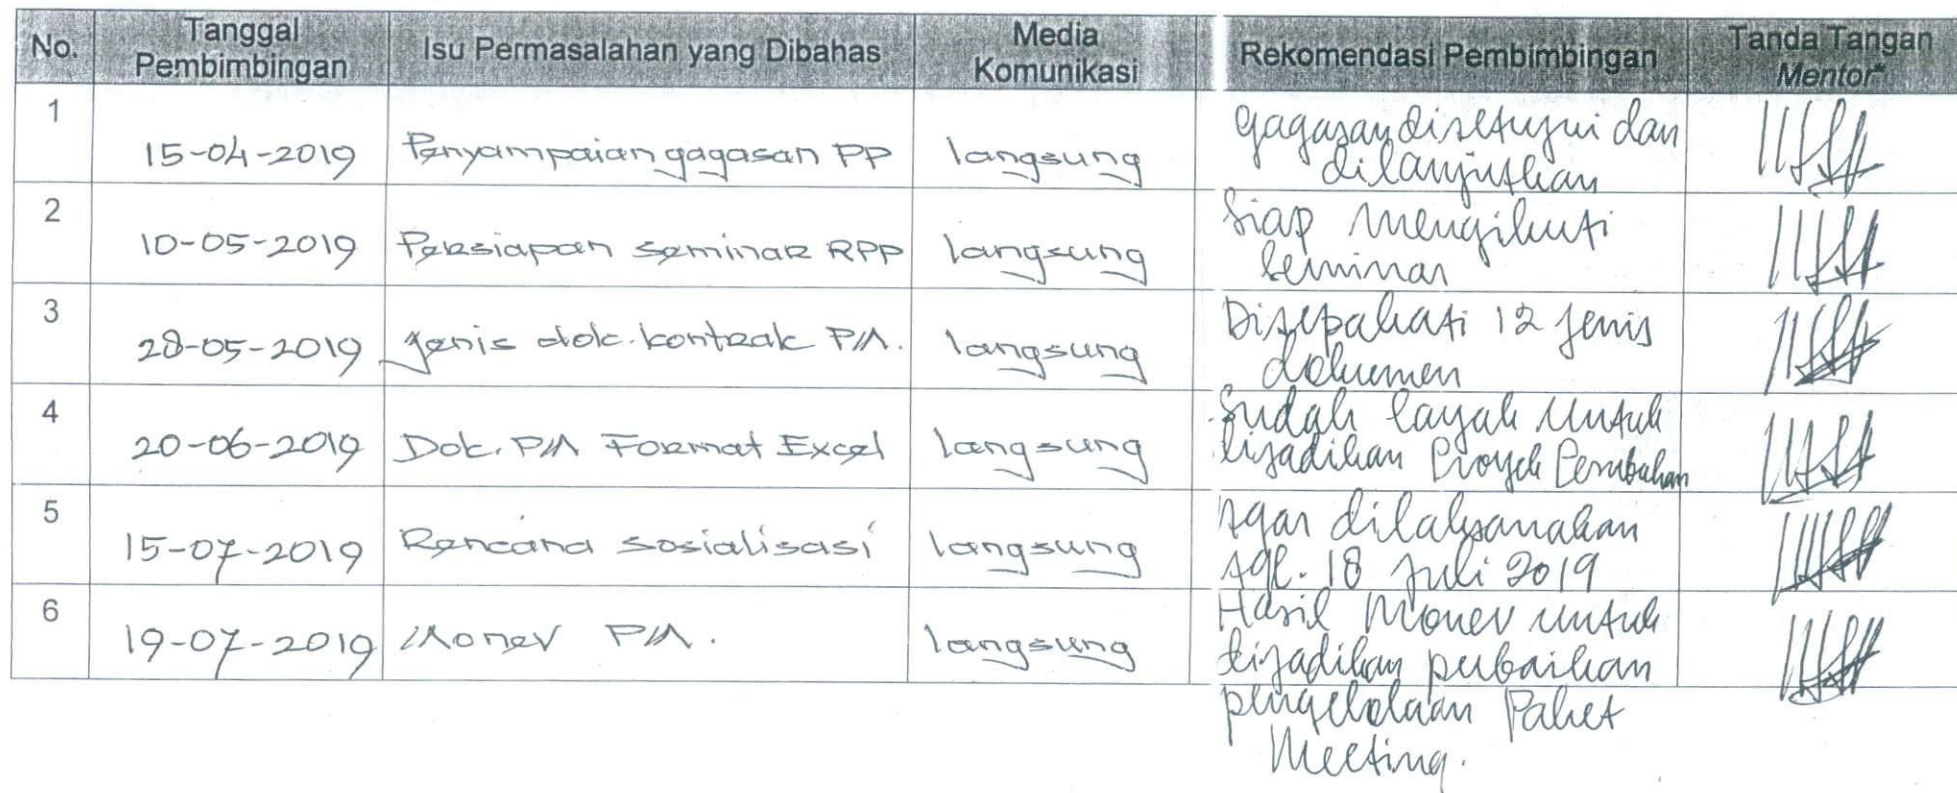 No.
Tanggal
Pembimbingan
Isu Permasalahan yang Dibahas
Media
Komunikasi
Rekomendasi Pembimbingan
Tanda Tangan
Mentor*
1
15-04-2019
Penyampaian gagasan PP
langsung
gagasan disetujui dan
dilanjutkan
2
10-05-2019
Persiapan seminar RPP
langsung
Siap mengikuti
seminar
3
28-05-2019
Jenis dok. kontrak PM.
langsung
Disepakati 12 jenis
dokumen
4
20-06-2019
Dok. PM Format Excel
langsung
Sudah layak untuk
dijadikan Proyek Perubahan
5
15-07-2019
Rencana sosialisasi
langsung
Agar dilaksanakan
tgl. 18 Juli 2019
6
19-07-2019
Monev PM.
langsung
Hasil Monev untuk
dijadikan perbaikan
pengelolaan Paket
Meeting.